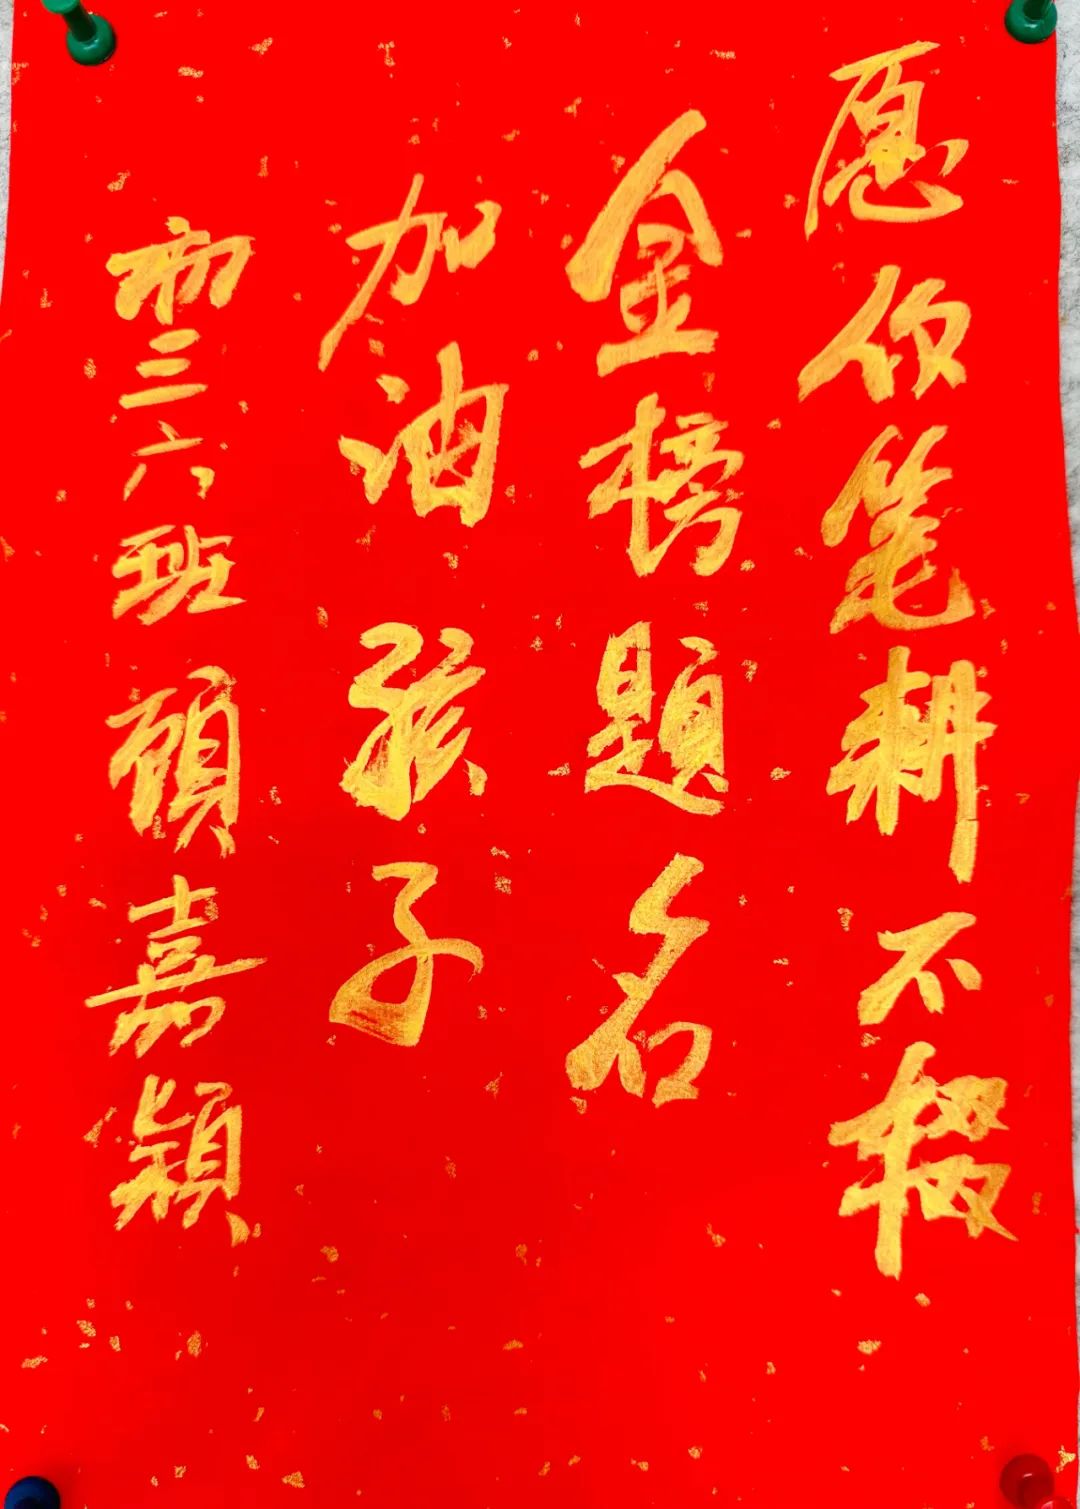 愿你笔耕不辍
金榜题名
加油孩子
初三六班顾嘉颖